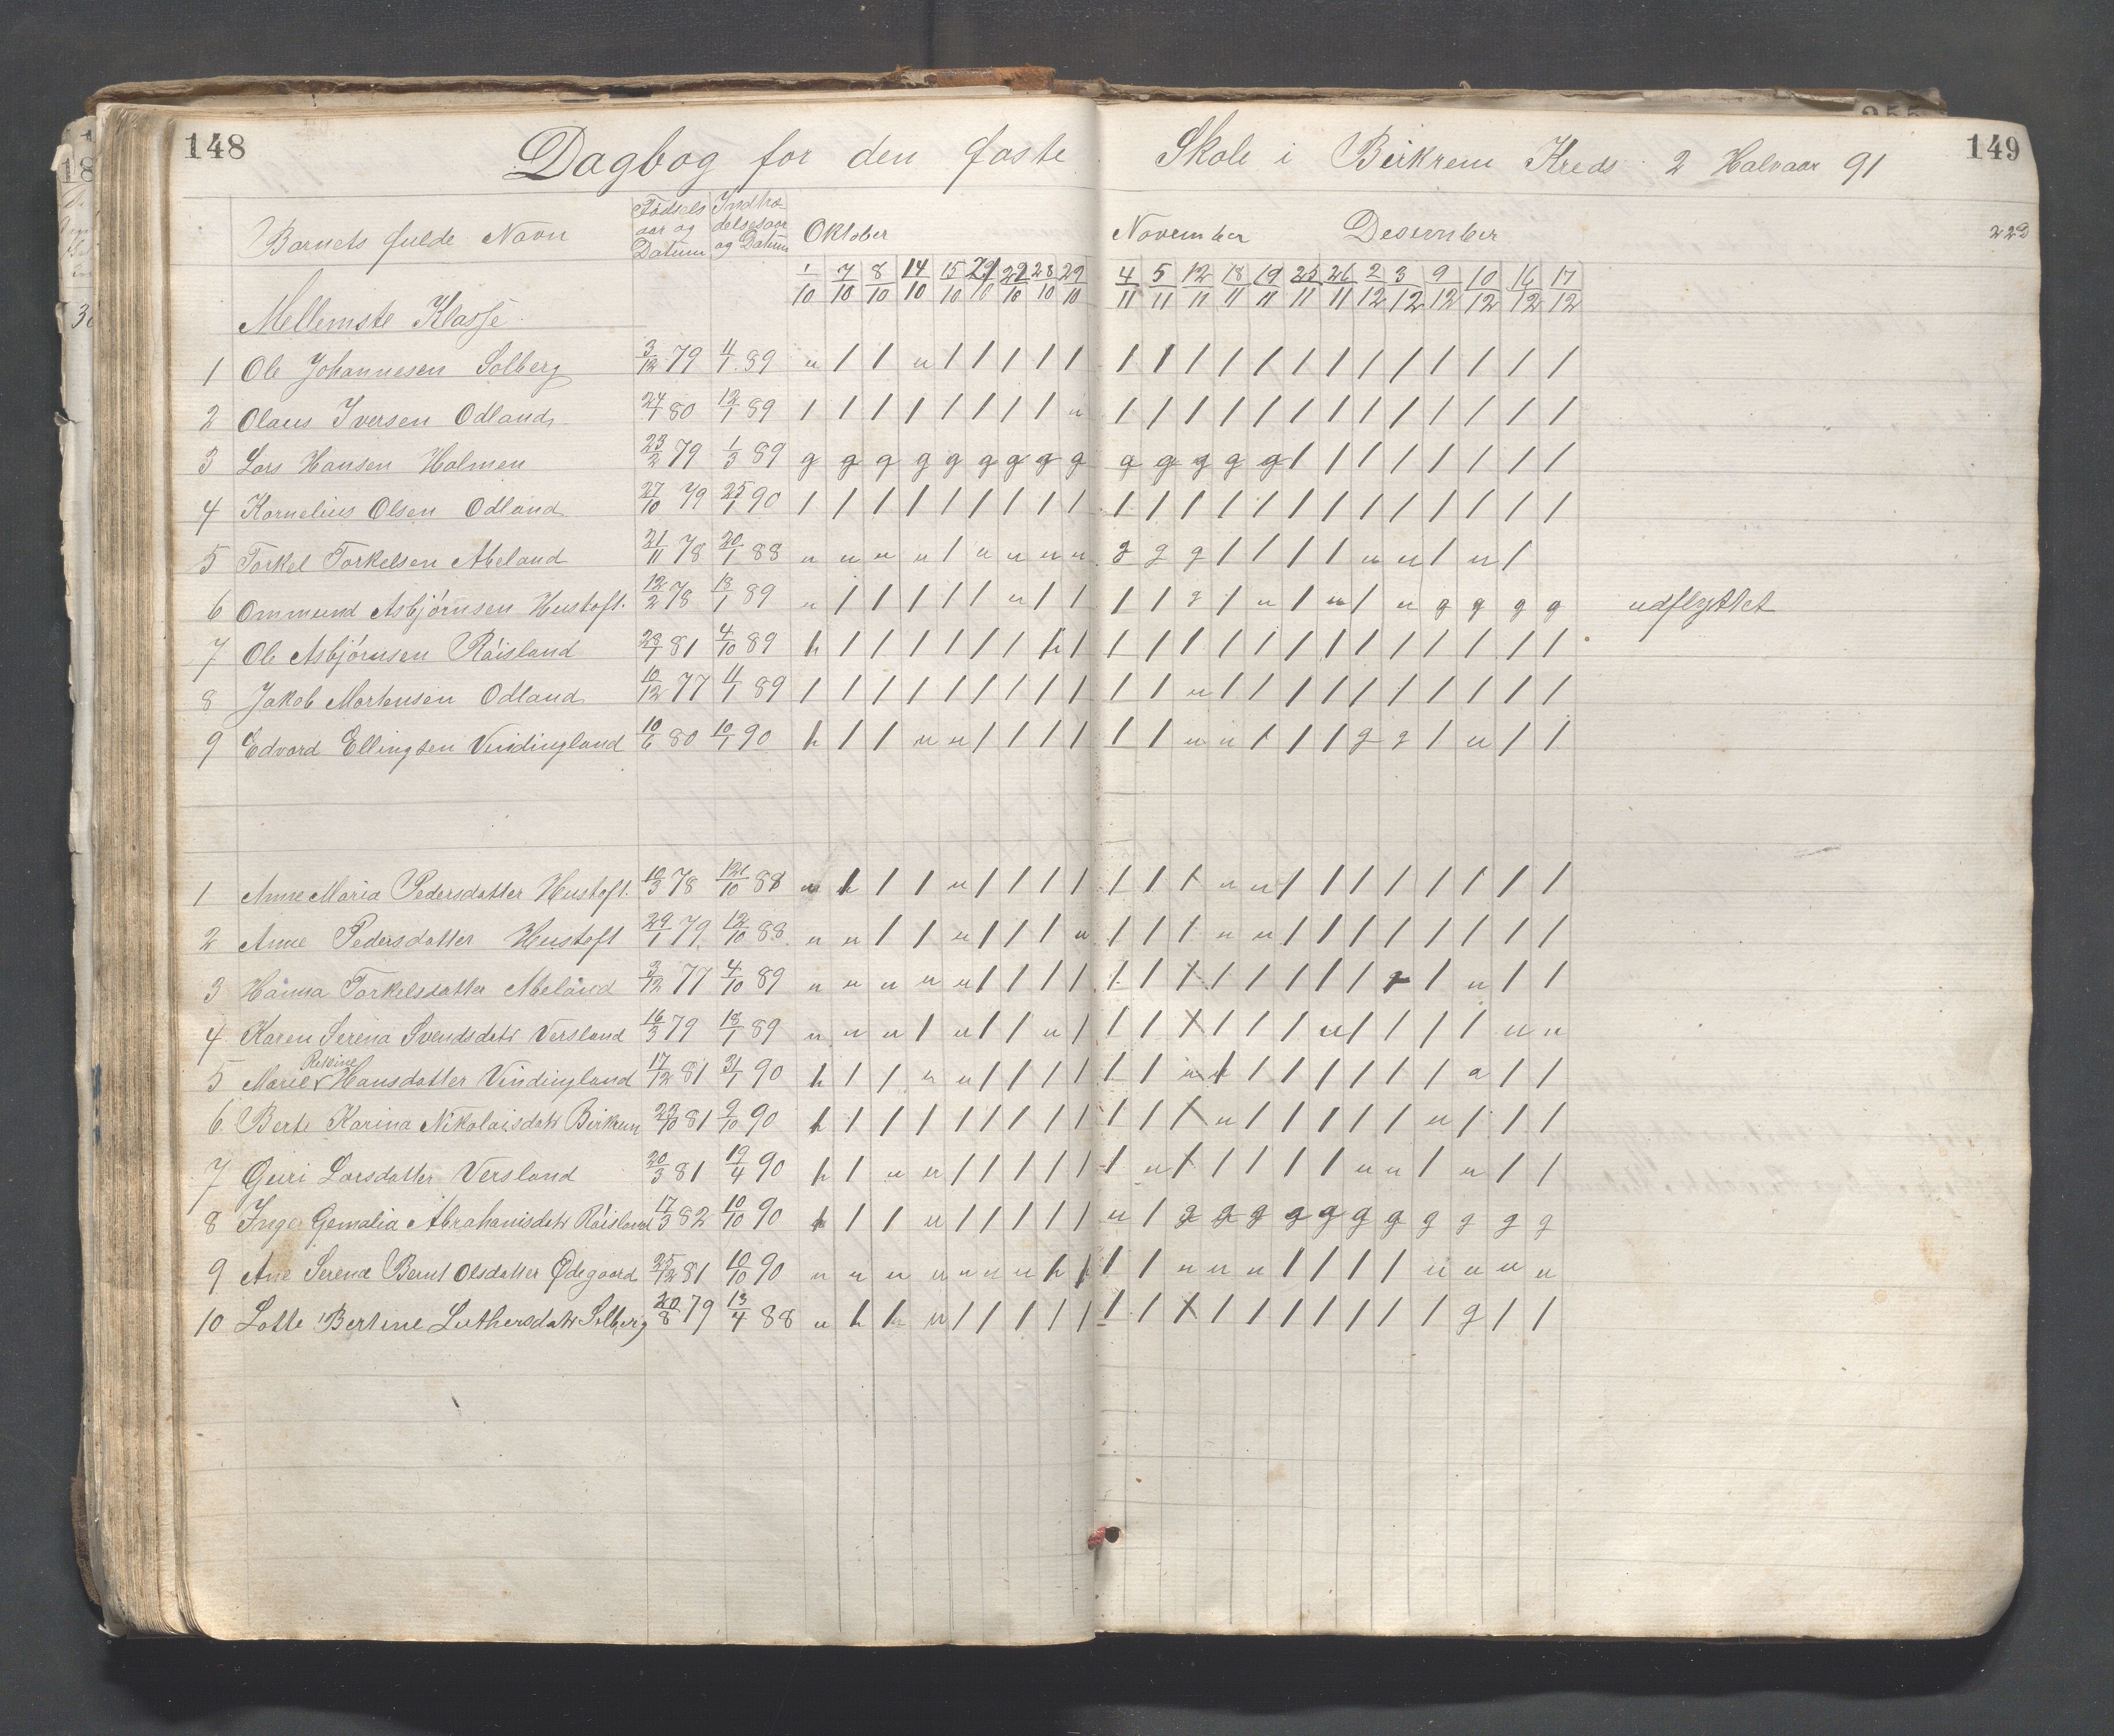 148 Dagbog for den faste Skole i Birkrem Kreds 2 Halvaar 91 149
Barnets fulde Navn Fødsels aar og Datum Indtrædelsesaar og Datum Oktober November Desember
1/10 7/10 8/10 14/10 15/10 21/10 22/10 28/10 29/10 4/11 5/11 12/11 18/11 19/11 25/11 26/11 2/12 3/12 9/12 10/12 16/12 17/12
Mellemste Klasse
1 Ole Johannesen Solberg 3/12 79 4/1 89 u / / u / / / / / / / / / / / / / / / / / /
2 Olaus Iversen Odland 24/1 80 12/1 89 / / / / / / / / u / / / / / / / / / / / / /
3 Lars Hansen Holmen 23/2 79 1/3 89 g g g g g g g g g g g g g g / / / / / / / /
4 Kornelius Olsen Odland 27/10 79 25/1 90 / / / / / / / / / / / / / / / / / / / / / /
5 Torkel Torkelsen Åbeland 21/11 78 20/1 88 u u u u / u u u u g g g / / / / u u / u /
6 Ommund Asbjørnsen Hustoft. 12/2 78 18/1 89 u / / / / / u / / / / g / u / u / u g g g g udflyttet
7 Ole Asbjørnsen Røisland 28/1 81 4/10 89 h / / / / / / h / / / / / / / / / / / / / /
8 Jakob Mortensen Odland 10/12 77 4/1 89 / / / / / / / / / / / u / / / / / / / / / /
9 Edvard Ellingsen Vindingland 10/6 80 10/1 90 h / / u u / / / / / / u u / / / g g / u / /
1 Anne Maria Pedersdatter Hustoft. 10/3 78 12/10 88 u h / / u / / / / / / / u u / / / / / / / /
2 Anne Pedersdatter Hustoft 29/1 79 12/10 88 u u / / u / / / u / / / u u / / / / / / / /
3 Hanna Torkelsdatter Åbeland 3/12 77 4/10 89 u u u u u / / / / / / / / / / / / g / u / /
4 Karen Serina Svendsdatr Versland 16/3 79 18/1 89 u u u / u / / u / / / / / / / u / / / / u u
Rebine
5 Marie Hansdatter Vindingland 17/12 81 31/1 90 h / / u u / / / / / / u / / / / / / / a / /
6 Berte Karina Nikolaisdatr Birkrem 22/10 81 9/10 90 h / / / / / / / / / / / u / / / / / u / / /
7 Guri Larsdatter Versland 20/3 81 19/4 90 h / u u / / / / / / u / / / / / u u / u / /
8 Inger Gemalia Abrahamsdatr Røisland 17/3 82 10/10 90 h / / u / / / / / u / g g g g g g g g g g g
9 Ane Serena Bernt Olsdatter Ødegaard 25/12 81 10/10 90 u u u u u u u h h / / u u u / / / / u u u u
10 Lotte Bertine Luthersdatr Solberg 20/8 79 13/4 88 u h h u / / / / / / / / / / / / / / / g / /